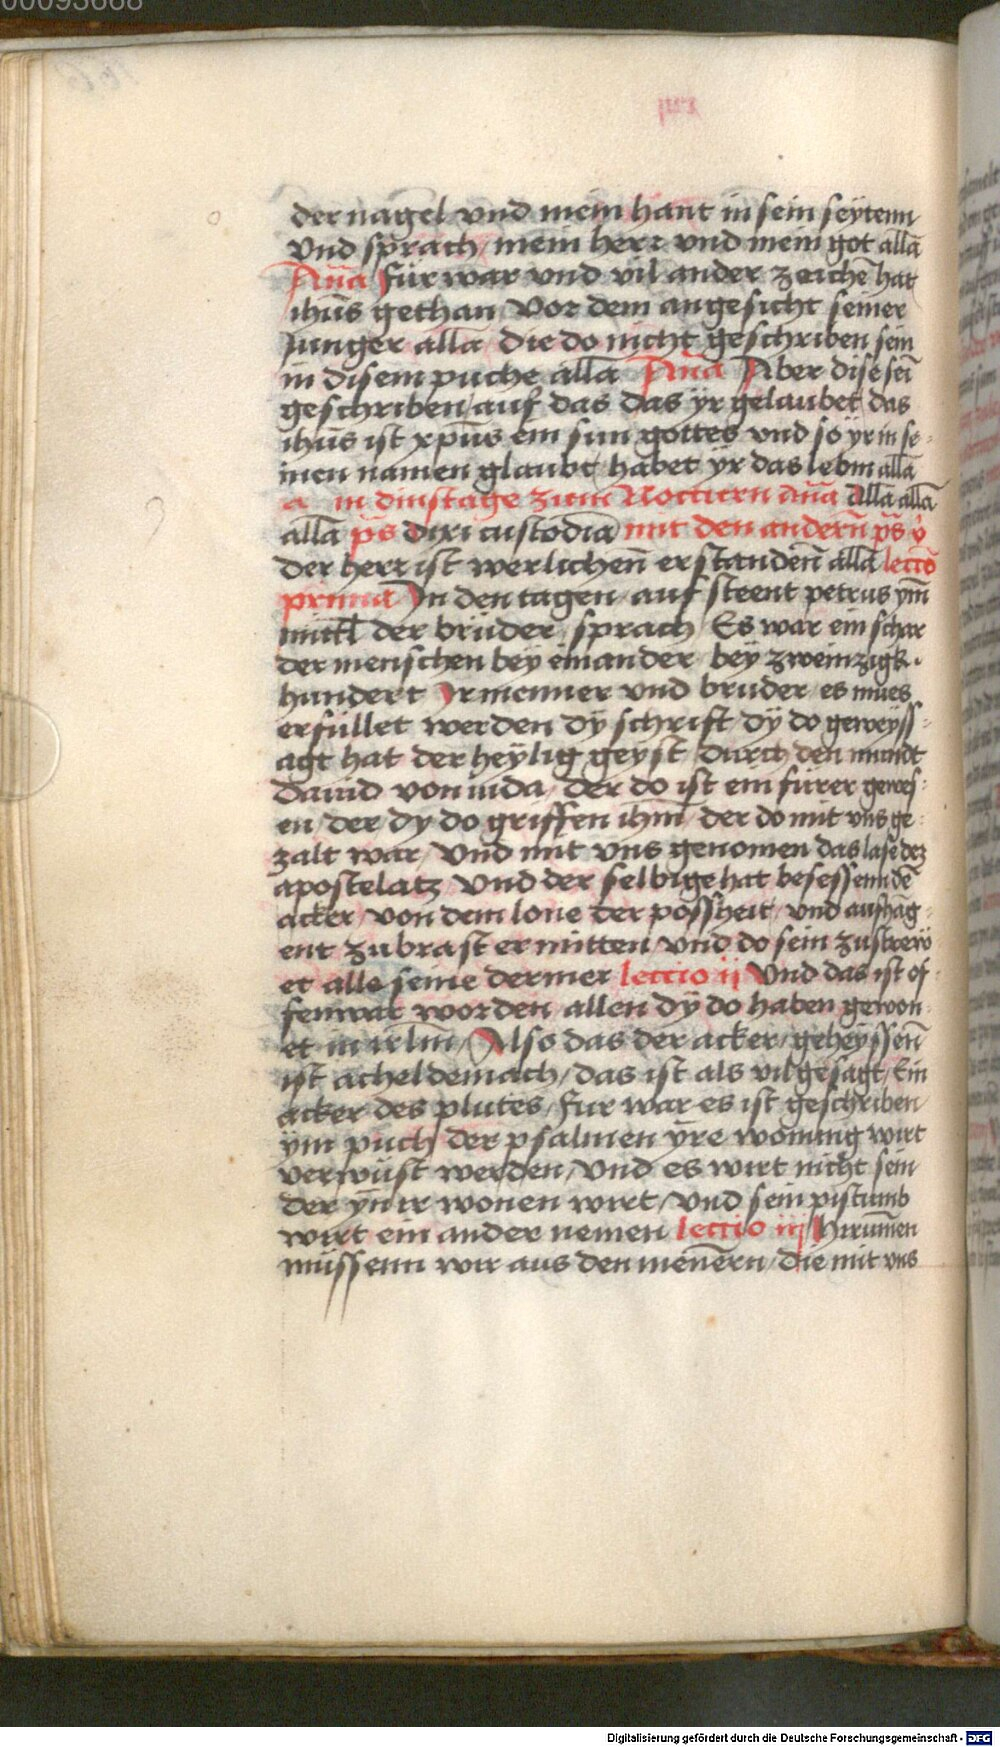 00093668
der nagel und mein hant in sein seÿtenn
Und sprach / mein herr und mein got allā
Añā fürwar und vil ander zeichē hat
ihūs gethan Vor dem angesicht seiner
Junger allā die do nicht geschriben sein
in disem puche allā Añā Aber dise sei
geschriben / auf das das ÿr gelaubet das
ihūs ist xpūs ein sun gottes und so ÿr in se-
inen namen glaubt / habet ÿr das lebm allā
a in dinstage zum Nocturn Añā Allā allā
allā p̄s dixi custodiā mit den andern̄ p̄s v̇
der herr ist werlichen̄ erstanden̄ allā lectō
prima In den tagen auf steent petrus ym̄
mittl der brüder / sprach Es war ein schar
der menschen beÿ einander beÿ zweinzigk.
hundert Ir menner und bruder es mues
erfüllet werden dÿ schrift dÿ do geweÿss-
agt hat der heÿlig geÿst durch den mundt
Dauid von iuda / der do ist ein fürer gewes-
en / der dy do griffen ihm̄ / der do mit uns ge-
zalt war / Und mit uns genomen das lase dez
apostelatz Und der selbige hat besessenn dē
acker / von dem lone der possheit / und aufhāg-
ent zubrast er mitten und do sein zustrew-
et alle seine dermer lectio ij Und das ist of-
fenwar worden allen dÿ do haben gewon-
et in irlm̄ / Also das der acker geheÿssen̄
ist acheldemach / das ist als vil gesagt / Ein
acker des plutes / fur war es ist geschriben
ÿm puch der psalmen ÿre wonung wirt
verwüst werden / Und es wirt nicht sein
der ÿn ir wonen wirt / Und sein pistumb
wirt ein ander nemen lectio iij Hirum̄en
müssenn wir aus den menern̄ / die mit uns
Digitalisierung gefördert durch die Deutsche Forschungsgemeinschaft - DFG